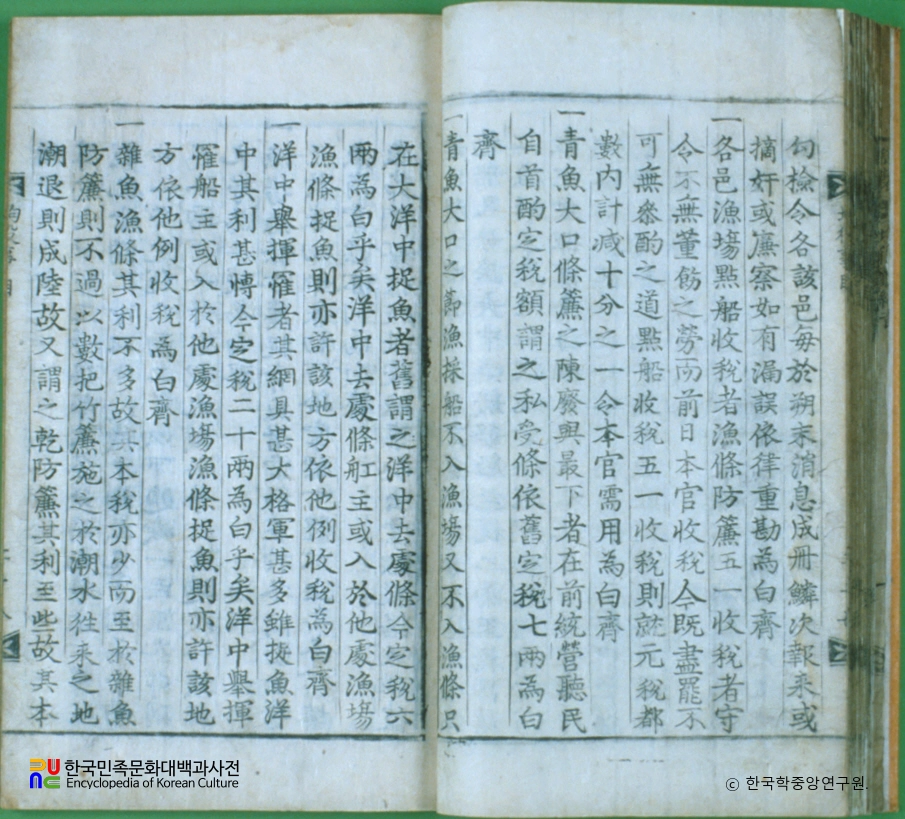 句撿令各該邑每於朔末消息成冊鱗次報来或
摘奸或廉察如有漏誤依律重勘為白齊
一各邑漁塲點船收稅者漁條防簾五一收稅者守
令不無董飭之勞而前日本官收稅今既盡罷不
可無叅酌之道點船收稅五一收稅則就元稅都
數內計减十分之一令本官需用為白齊
一青魚大口條簾之陳廢與最下者在前統營聽民
自首酌定稅額謂之私受條依舊定稅七兩為白
齊
一青魚大口之節漁採船不入漁塲又不入漁條只
在大洋中捉魚者舊謂之洋中去處條今定稅六
兩為白乎矣洋中去處條舡主或入於他處漁塲
漁條捉魚則亦許該地方依他例收稅為白齊
一洋中擧揮罹者其網具甚大格軍甚多雖捉魚洋
中其利甚慱今定稅二十兩為白乎矣洋中擧揮
罹船主或入於他處漁塲漁條捉魚則亦許該地
方依他例收稅為白齊
一雜魚漁條其利不多故其本稅亦少而至於雜魚
防簾則不過以數把竹簾施之於潮水徃来之地
潮退則成陸故又謂之乾防簾其利至些故其本
한국민족문화대백과사전
Encyclopedia of Korean Culture
© 한국학중앙연구원.